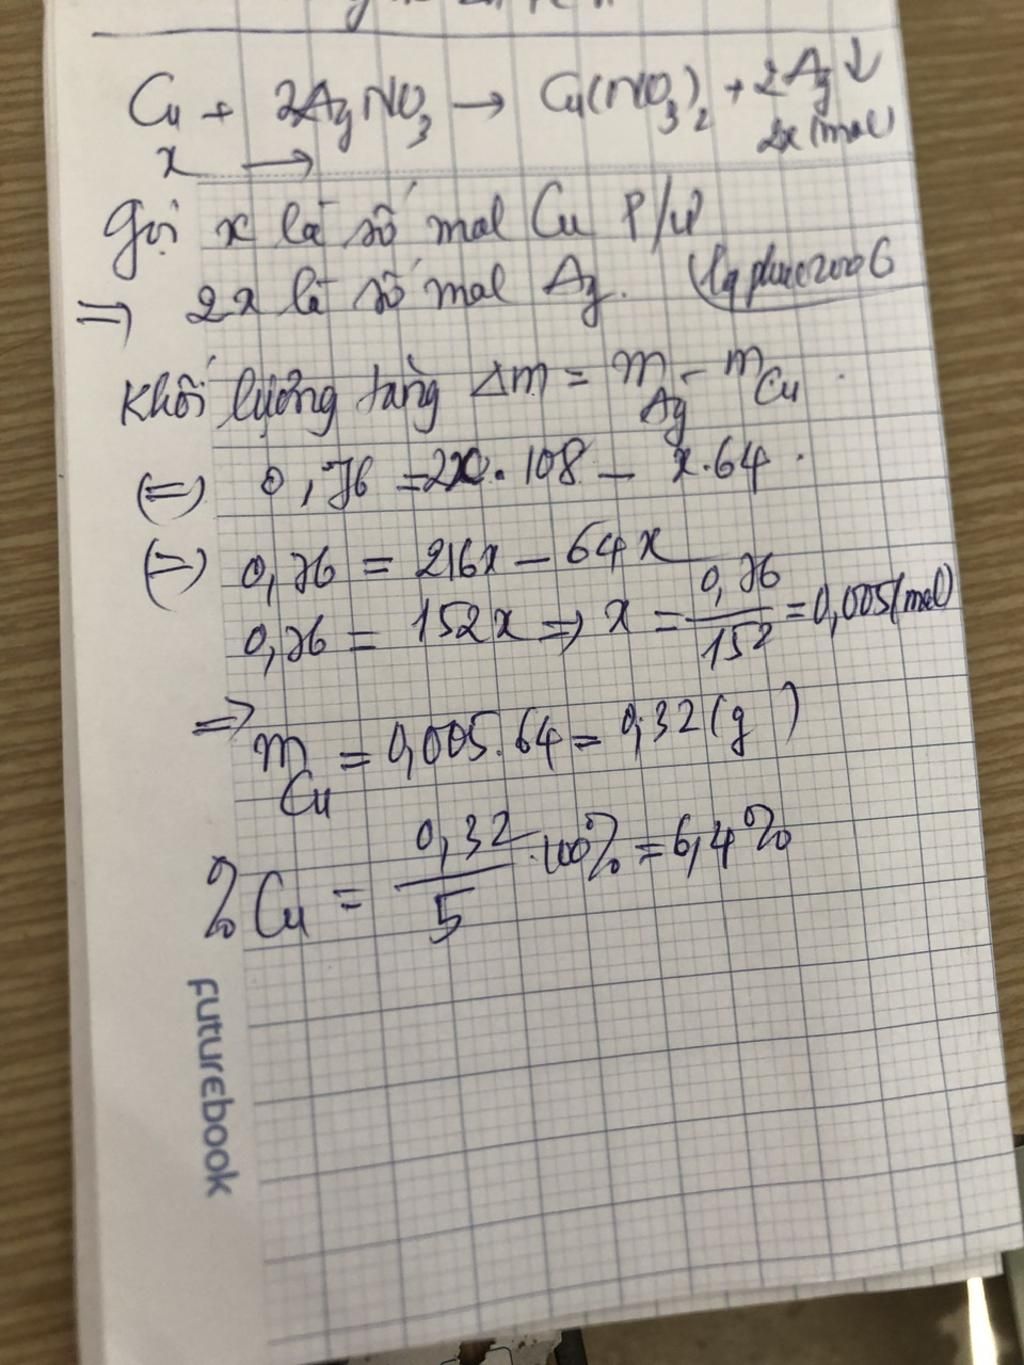 Cu + 2AgNO3 → Cu(NO3)2 + 2Ag↓
x → 2x (mol)
Gọi x là số mol Cu P/Ư
⇒ 2x là số mol Ag. lqphuc2006
Khối lượng tăng Δm = mAg - mCu
(=) 0,76 = 2x.108 - x.64.
(=) 0,76 = 216x - 64x
0,76 = 152x ⇒ x = 0,76/152 = 0,005(mol)
⇒ mCu = 0,005.64 = 0,32(g)
%Cu = 0,32/5 .100% = 6,4%
FUTUREBOOK